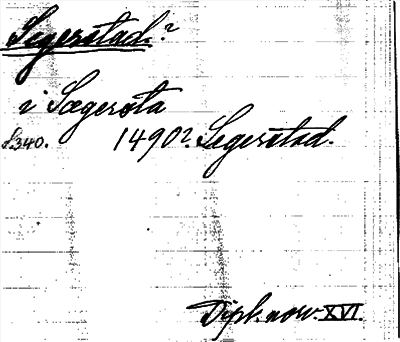 Segerstad.?
i Sægersta
S.340. 1490?. Segerstad.
Dipl. norv. XVI.